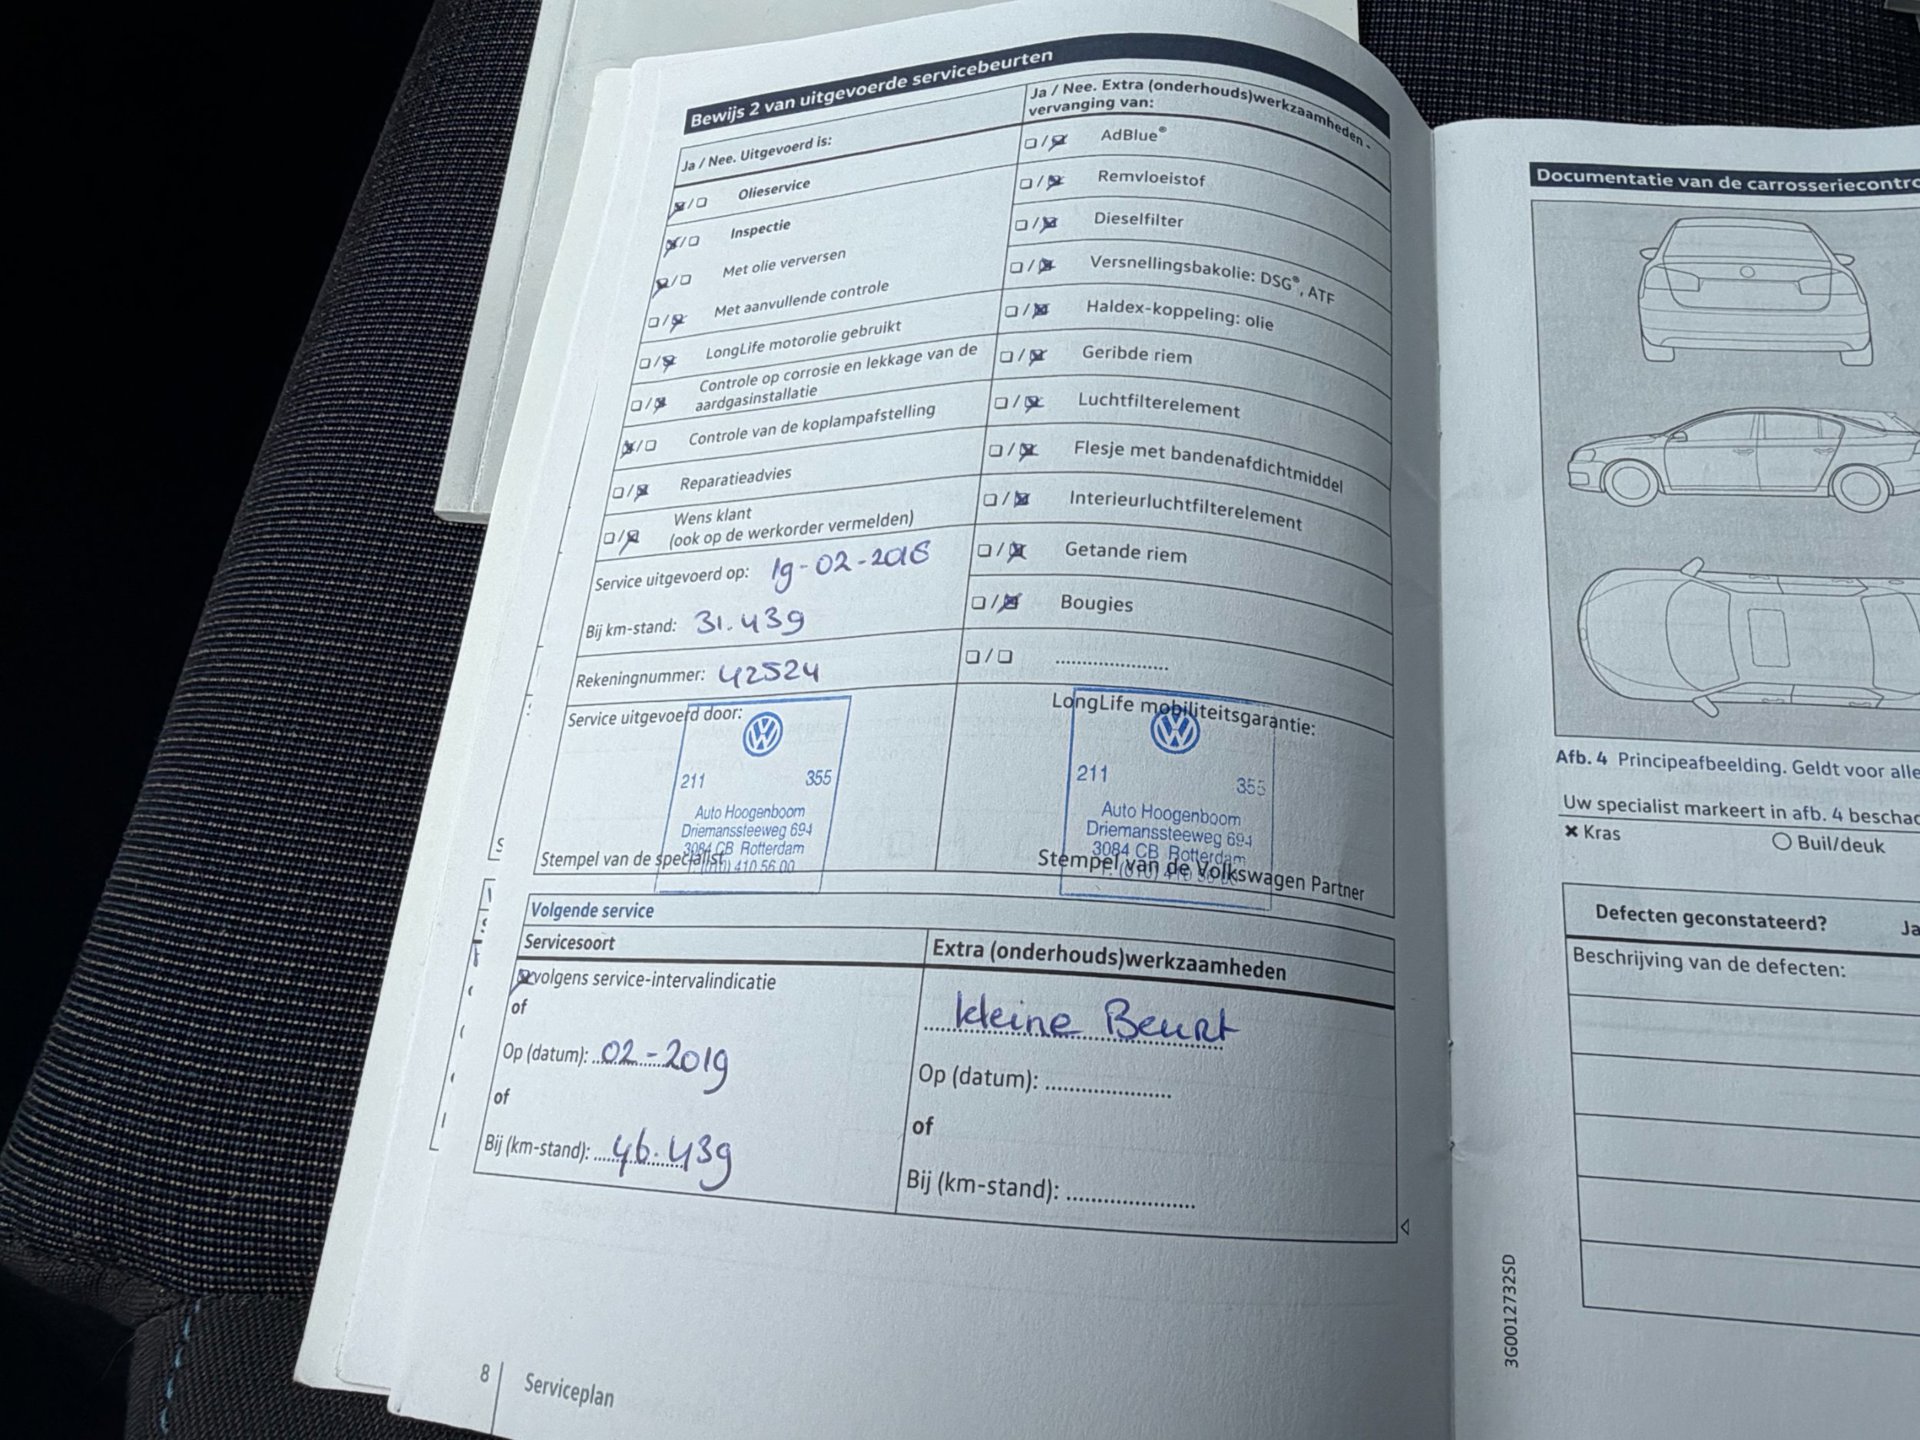 Bewijs 2 van uitgevoerde servicebeurten
Ja / Nee. Uitgevoerd is:
Olieservice
Inspectie
Met olie verversen
Met aanvullende controle
LongLife motorolie gebruikt
Controle op corrosie en lekkage van de
aardgasinstallatie
Controle van de koplampafstelling
Reparatieadvies
Wens klant
(ook op de werkorder vermelden)
Service uitgevoerd op: 19-02-2018
Bij km-stand: 31.439
Rekeningnummer: 42524
Service uitgevoerd door:
VW
211 355
Auto Hoogenboom
Driemanssteeweg 694
3084 CB Rotterdam
T. (010) 410 56 00
Stempel van de specialist
Ja / Nee. Extra (onderhouds)werkzaamheden -
vervanging van:
AdBlue®
Remvloeistof
Dieselfilter
Versnellingsbakolie: DSG®, ATF
Haldex-koppeling: olie
Geribde riem
Luchtfilterelement
Flesje met bandenafdichtmiddel
Interieurluchtfilterelement
Getande riem
Bougies
LongLife mobiliteitsgarantie:
VW
211 355
Auto Hoogenboom
Driemanssteeweg 694
3084 CB Rotterdam
Stempel van de Volkswagen Partner
Volgende service
Servicesoort
volgens service-intervalindicatie
of
Op (datum): 02-2019
of
Bij (km-stand): 46.439
Extra (onderhouds)werkzaamheden
kleine Beurt
Op (datum):
of
Bij (km-stand):
8 Serviceplan
Documentatie van de carrosseriecontro
Afb. 4 Principeafbeelding. Geldt voor alle
Uw specialist markeert in afb. 4 beschad
Kras Buil/deuk
Defecten geconstateerd? Ja
Beschrijving van de defecten:
3G0012732SD